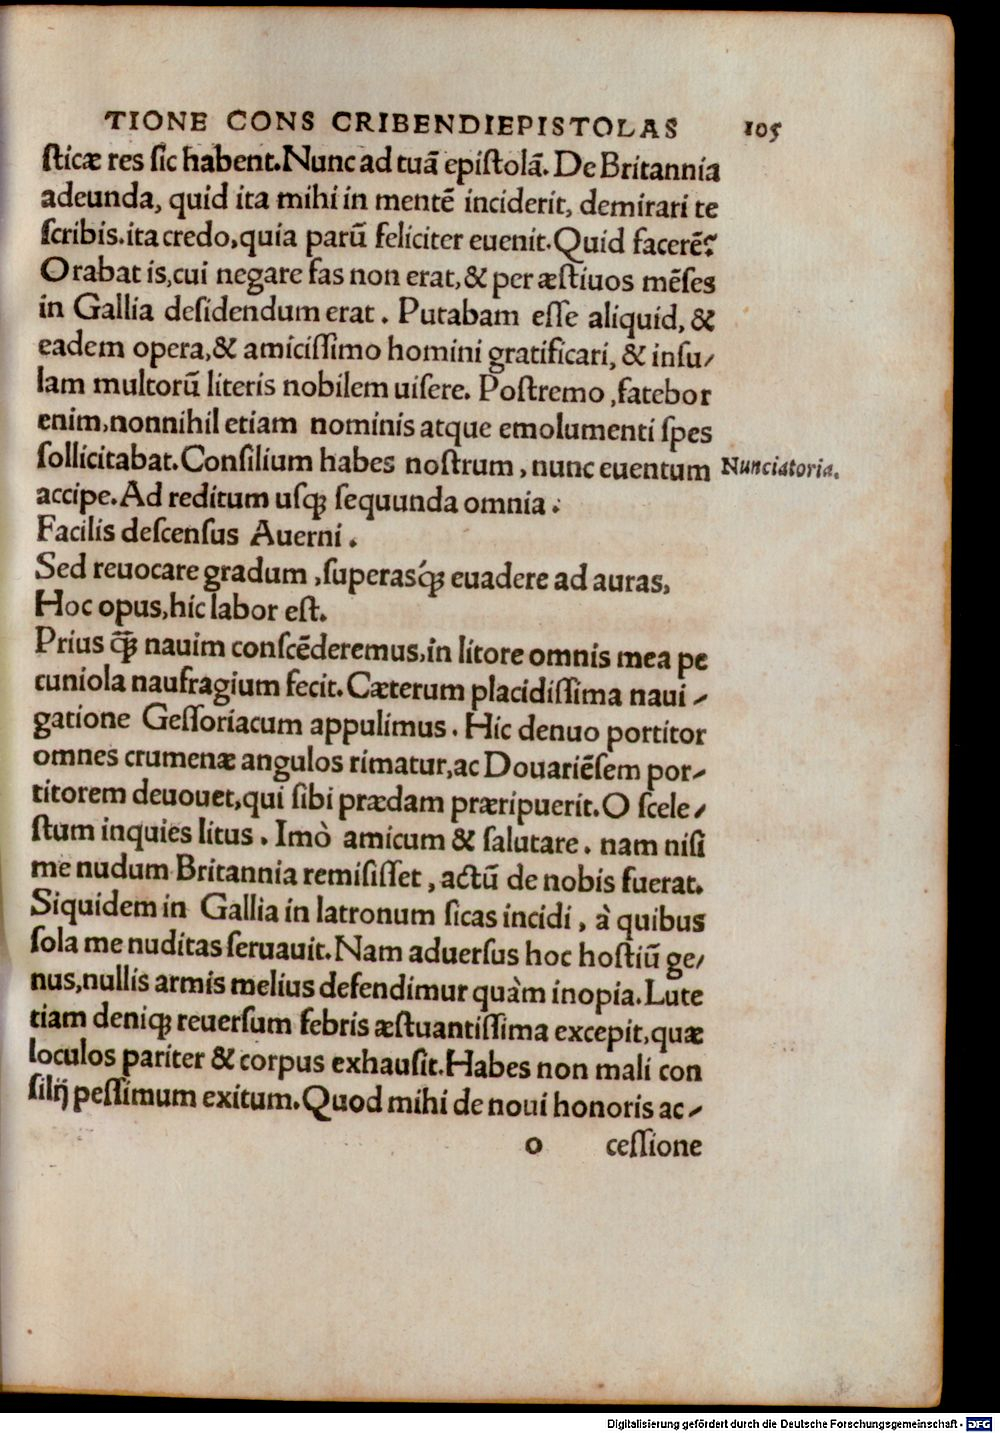 TIONE CONS CRIBENDIEPISTOLAS 105
sticæ res sic habent. Nunc ad tuã epistolã. De Britannia
adeunda, quid ita mihi in mentẽ inciderit, demirari te
scribis. ita credo, quia parũ feliciter euenit. Quid facerẽ?
Orabat is, cui negare fas non erat, & per æstiuos mẽses
in Gallia desidendum erat. Putabam esse aliquid, &
eadem opera, & amicissimo homini gratificari, & insu/
lam multorũ literis nobilem uisere. Postremo, fatebor
enim, nonnihil etiam nominis atque emolumenti spes
sollicitabat. Consilium habes nostrum, nunc euentum Nunciatoria.
accipe. Ad reditum usq; sequunda omnia.
Facilis descensus Auerni.
Sed reuocare gradum, superasq́; euadere ad auras,
Hoc opus, hic labor est.
Prius q̃; nauim conscẽderemus, in litore omnis mea pe
cuniola naufragium fecit. Cæterum placidissima naui-
gatione Gessoriacum appulimus. Hic denuo portitor
omnes crumenæ angulos rimatur, ac Douariẽsem por-
titorem deuouet, qui sibi prædam præripuerit. O scele/
stum inquies litus. Imò amicum & salutare. nam nisi
me nudum Britannia remisisset, actũ de nobis fuerat.
Siquidem in Gallia in latronum sicas incidi, à quibus
sola me nuditas seruauit. Nam aduersus hoc hostiũ ge/
nus, nullis armis melius defendimur quàm inopia. Lute
tiam deniq; reuersum febris æstuantissima excepit, quæ
loculos pariter & corpus exhausit. Habes non mali con
silij pessimum exitum. Quod mihi de noui honoris ac-
o cessione
Digitalisierung gefördert durch die Deutsche Forschungsgemeinschaft - DFG